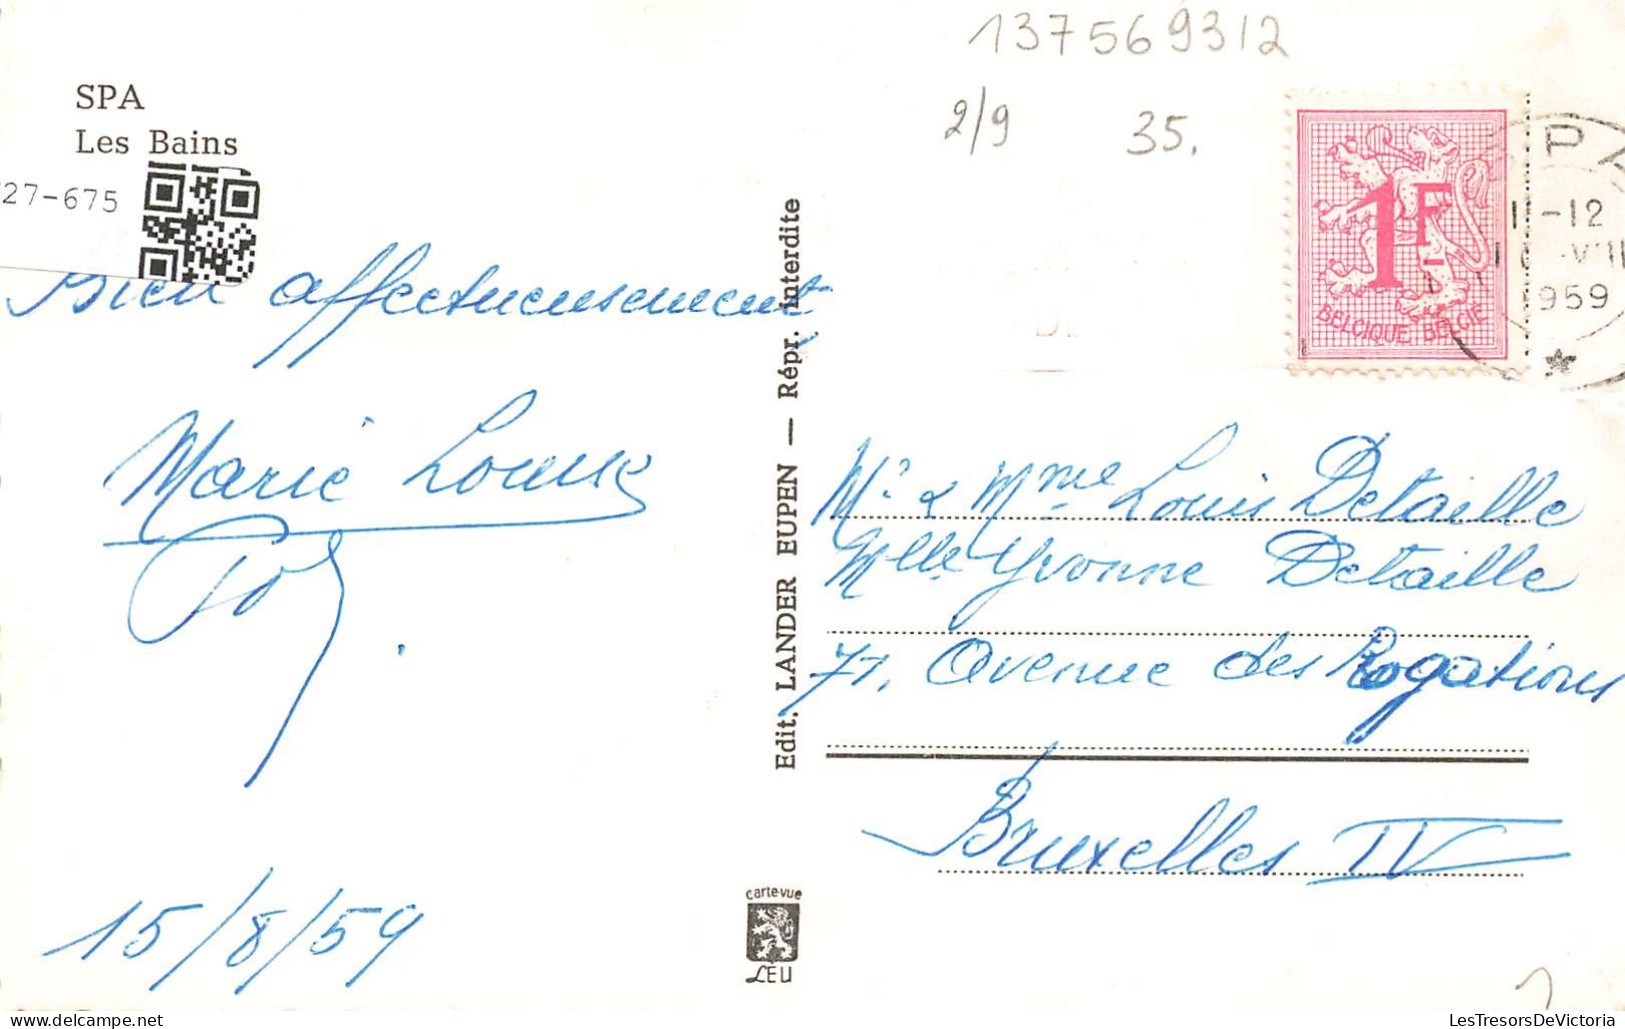 137569312
SPA
Les Bains
2/9 35.
27-675
1F
BELGIQUE BELGIE
11-12
1959
Bien affectueusement
Marie Louise
Mr & Mme Louis Detaille
Mlle Yvonne Detaille
71, Avenue des Rogations
Bruxelles IV
15/8/59
Edit. LANDER EUPEN — Répr. interdite
carte-vue
LEU
delcampe.net
LesTresorsDeVictoria